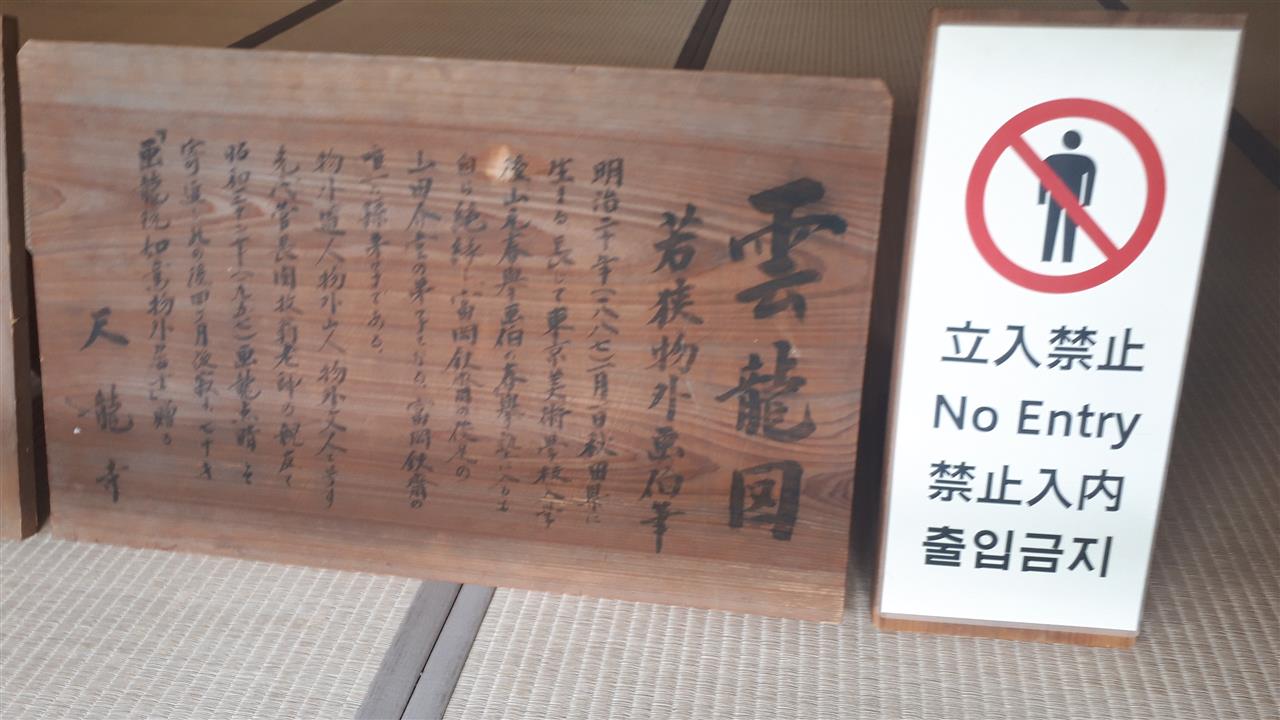 雲龍図
若狭物外画伯筆
明治二十年(一八八七)二月一日秋田県に
生まる 長じて東京美術学校入学
後山元春挙画伯の春挙塾に入るも
自ら絶縁し富岡鉄斎の後見の
山田介堂の弟子となる 富岡鉄斎の
唯一の孫弟子である。
物外道人 物外山人 物外文人と号す
先代管長関牧翁老師の親友で
昭和三十二年(一九五七)画龍点睛
寄進し此の後四ヶ月後歿す 七十才
「画龍院如嵩物外居士」贈る
天龍寺
立入禁止
No Entry
禁止入内
출입금지